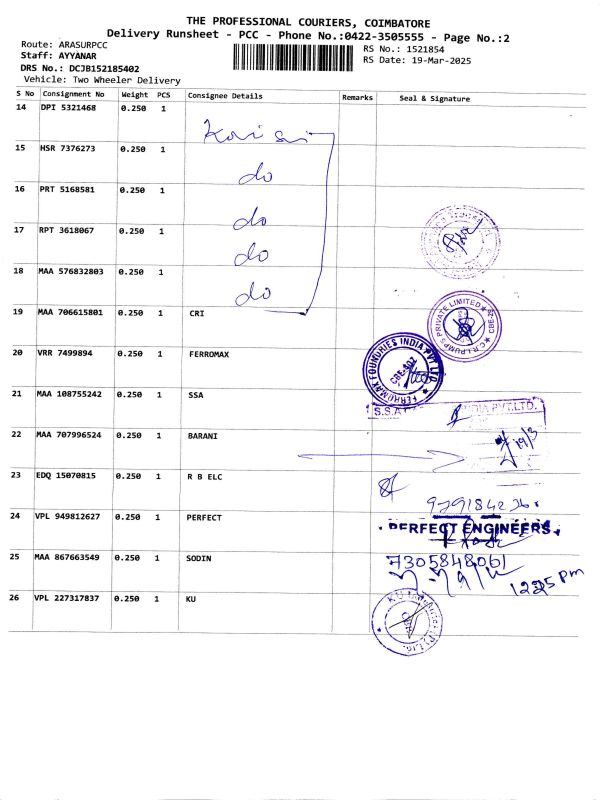 THE PROFESSIONAL COURIERS, COIMBATORE
Delivery Runsheet - PCC - Phone No.:0422-3505555 - Page No.:2
Route: ARASURPCC
RS No.: 1521854
Staff: AYYANAR
RS Date: 19-Mar-2025
DRS No.: DCJB152185402
Vehicle: Two Wheeler Delivery
S No Consignment No Weight PCS Consignee Details Remarks Seal & Signature
14 DPI 5321468 0.250 1
15 HSR 7376273 0.250 1 do
16 PRT 5168581 0.250 1 do
17 RPT 3618067 0.250 1 do
18 MAA 576832803 0.250 1 do
19 MAA 706615801 0.250 1 CRI
C.R.I. PUMPS PRIVATE LIMITED
20 VRR 7499894 0.250 1 FERROMAX
FOUNDRIES INDIA PVT LTD
21 MAA 108755242 0.250 1 SSA
S.S.A INDIA PVT.LTD.
22 MAA 707996524 0.250 1 BARANI
19/3
23 EDQ 15070815 0.250 1 R B ELC
24 VPL 949812627 0.250 1 PERFECT
PERFECT ENGINEERS
25 MAA 867663549 0.250 1 SODIN
7305848061
26 VPL 227317837 0.250 1 KU